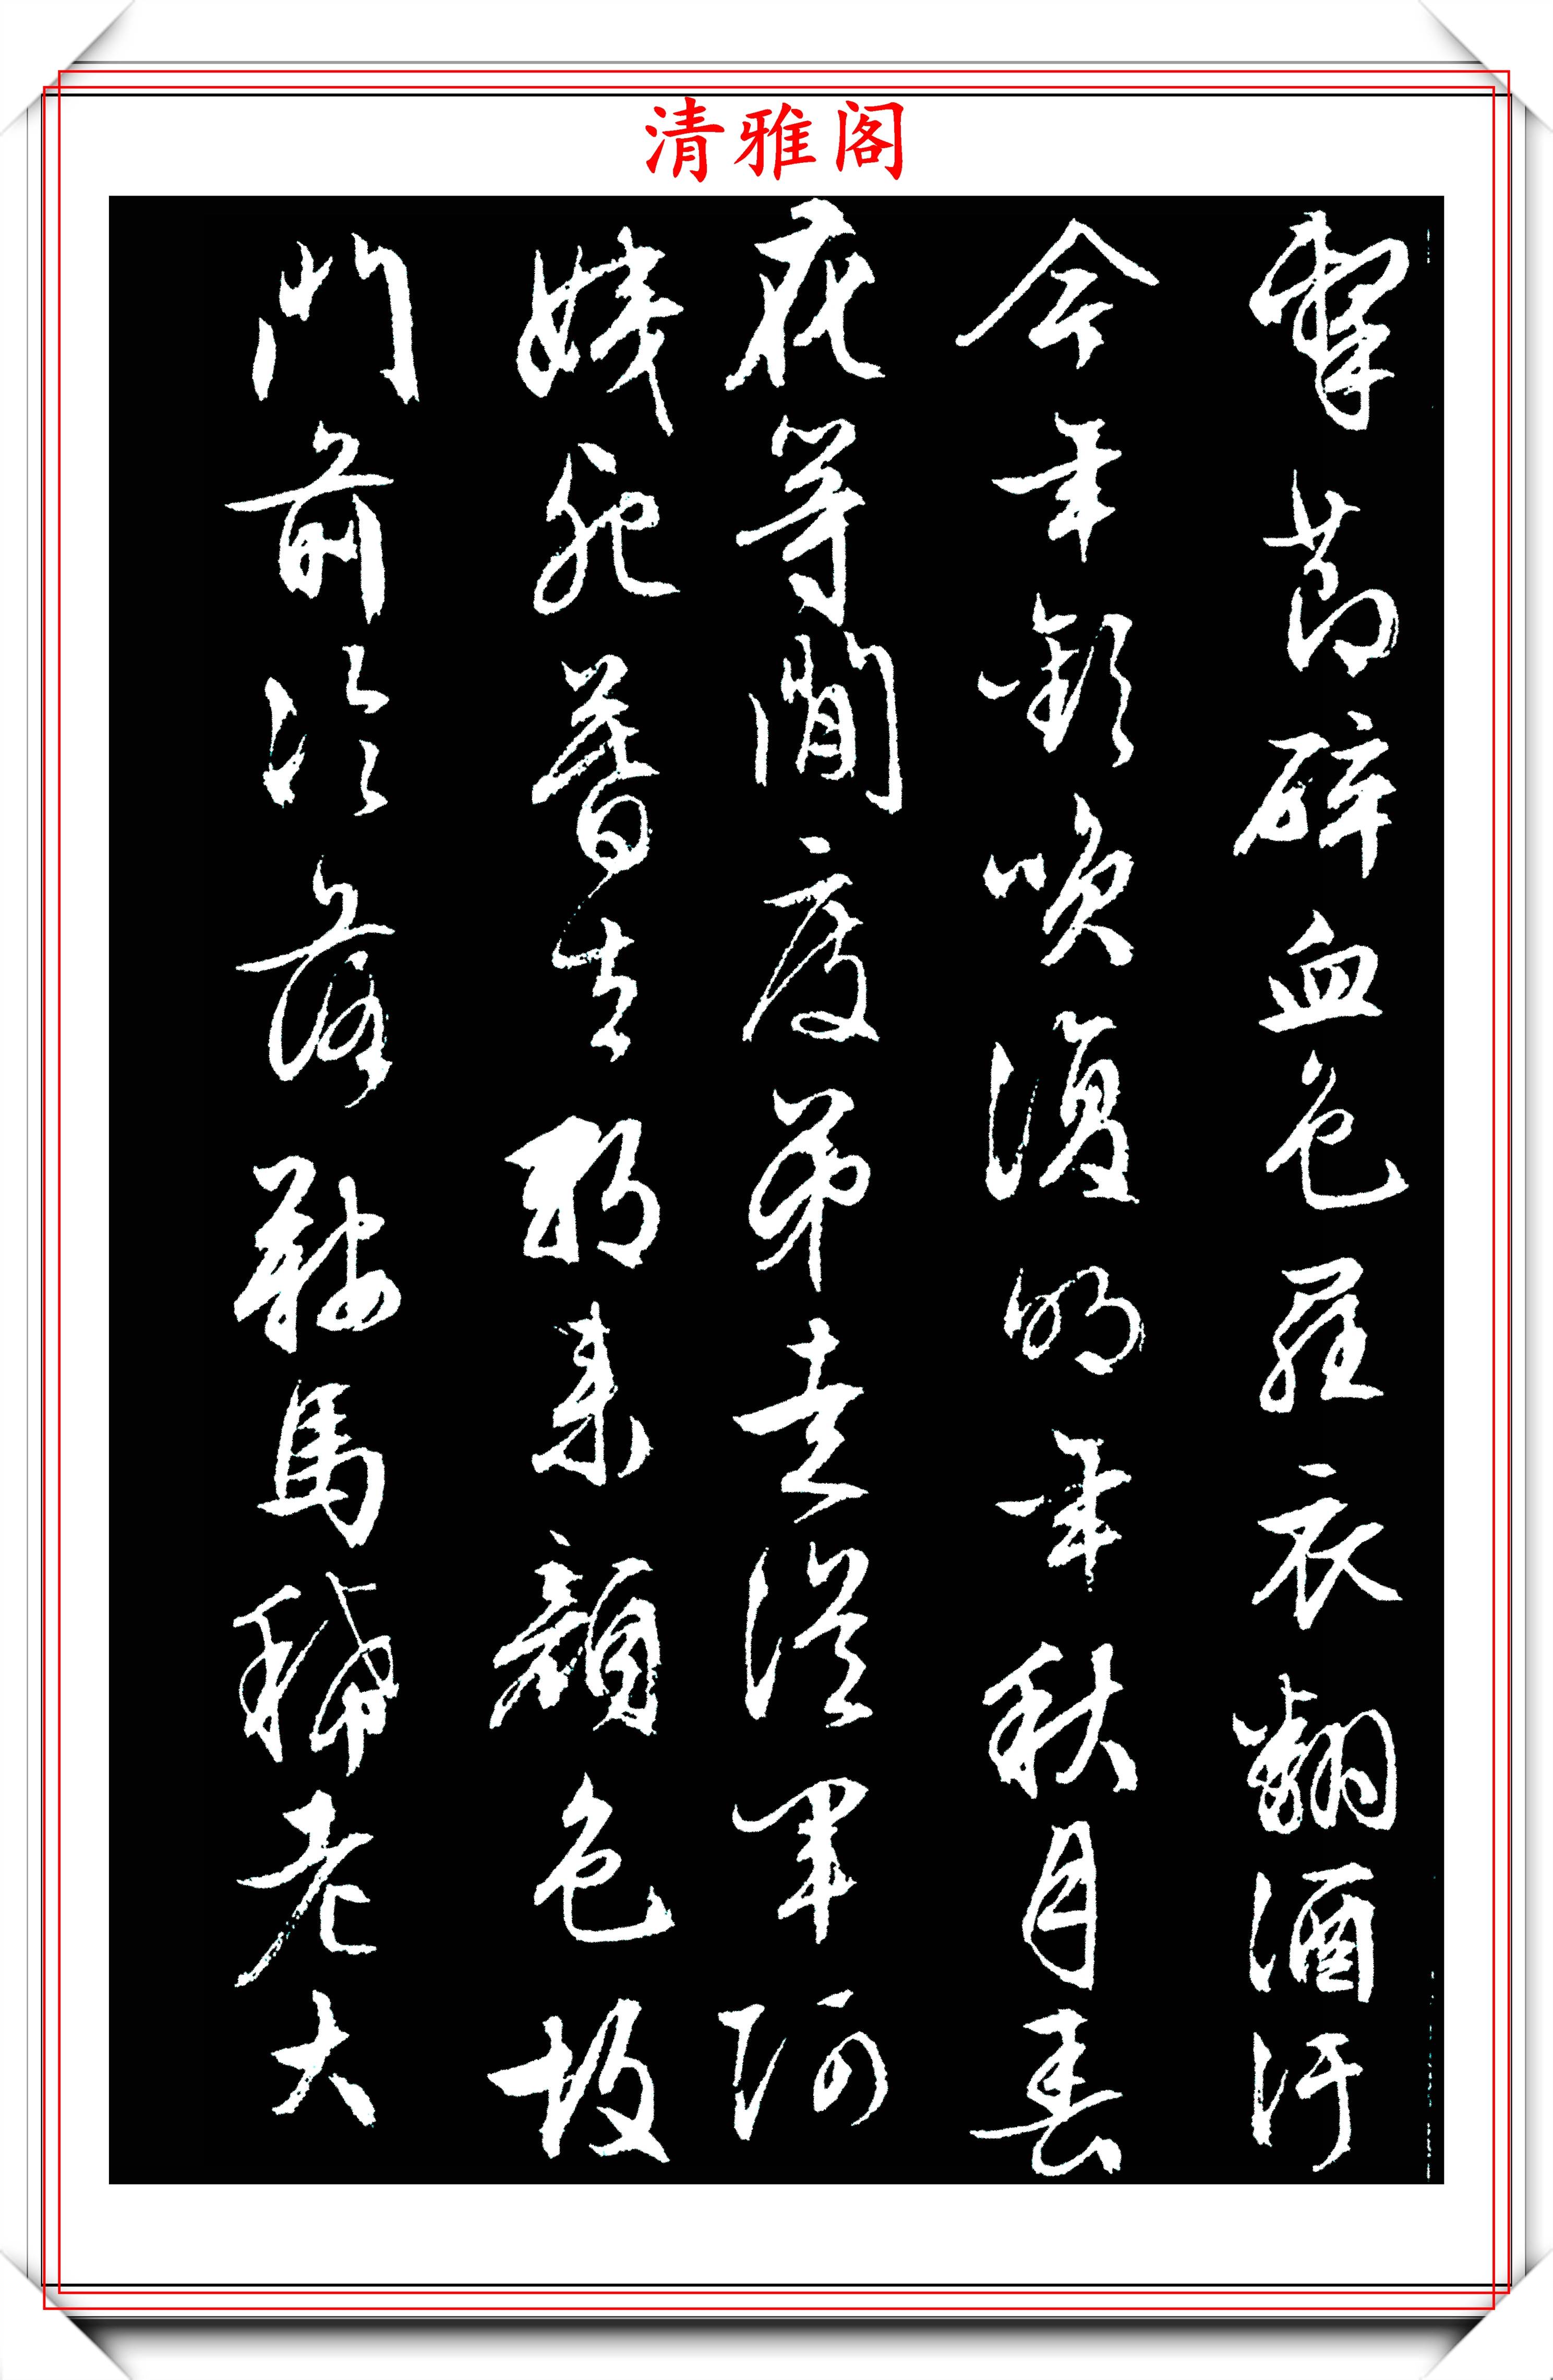 清雅阁
擊節碎血色羅衣翻酒汙
今年歡咲復明年秋月春
花等閒度弟走從軍阿
姨死暮去朝来顏色故
門前冷落鞍馬稀老大